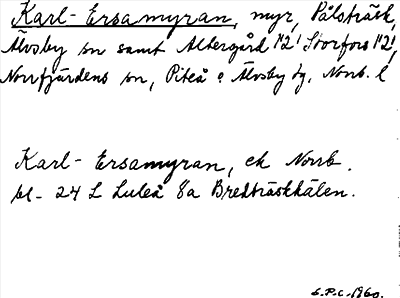 Karl-Ersamyran, myr, Pålsträsk,
Älvsby sn samt Altergård 1¹2! Storfors 1¹2!,
Norrfjärdens sn, Piteå o. Älvsby tg, Norrb. l
Karl-Ersamyran, ek Norrb.
bl- 24 L Luleå 8a Bredträskhålen.
S.P.C. 1960.